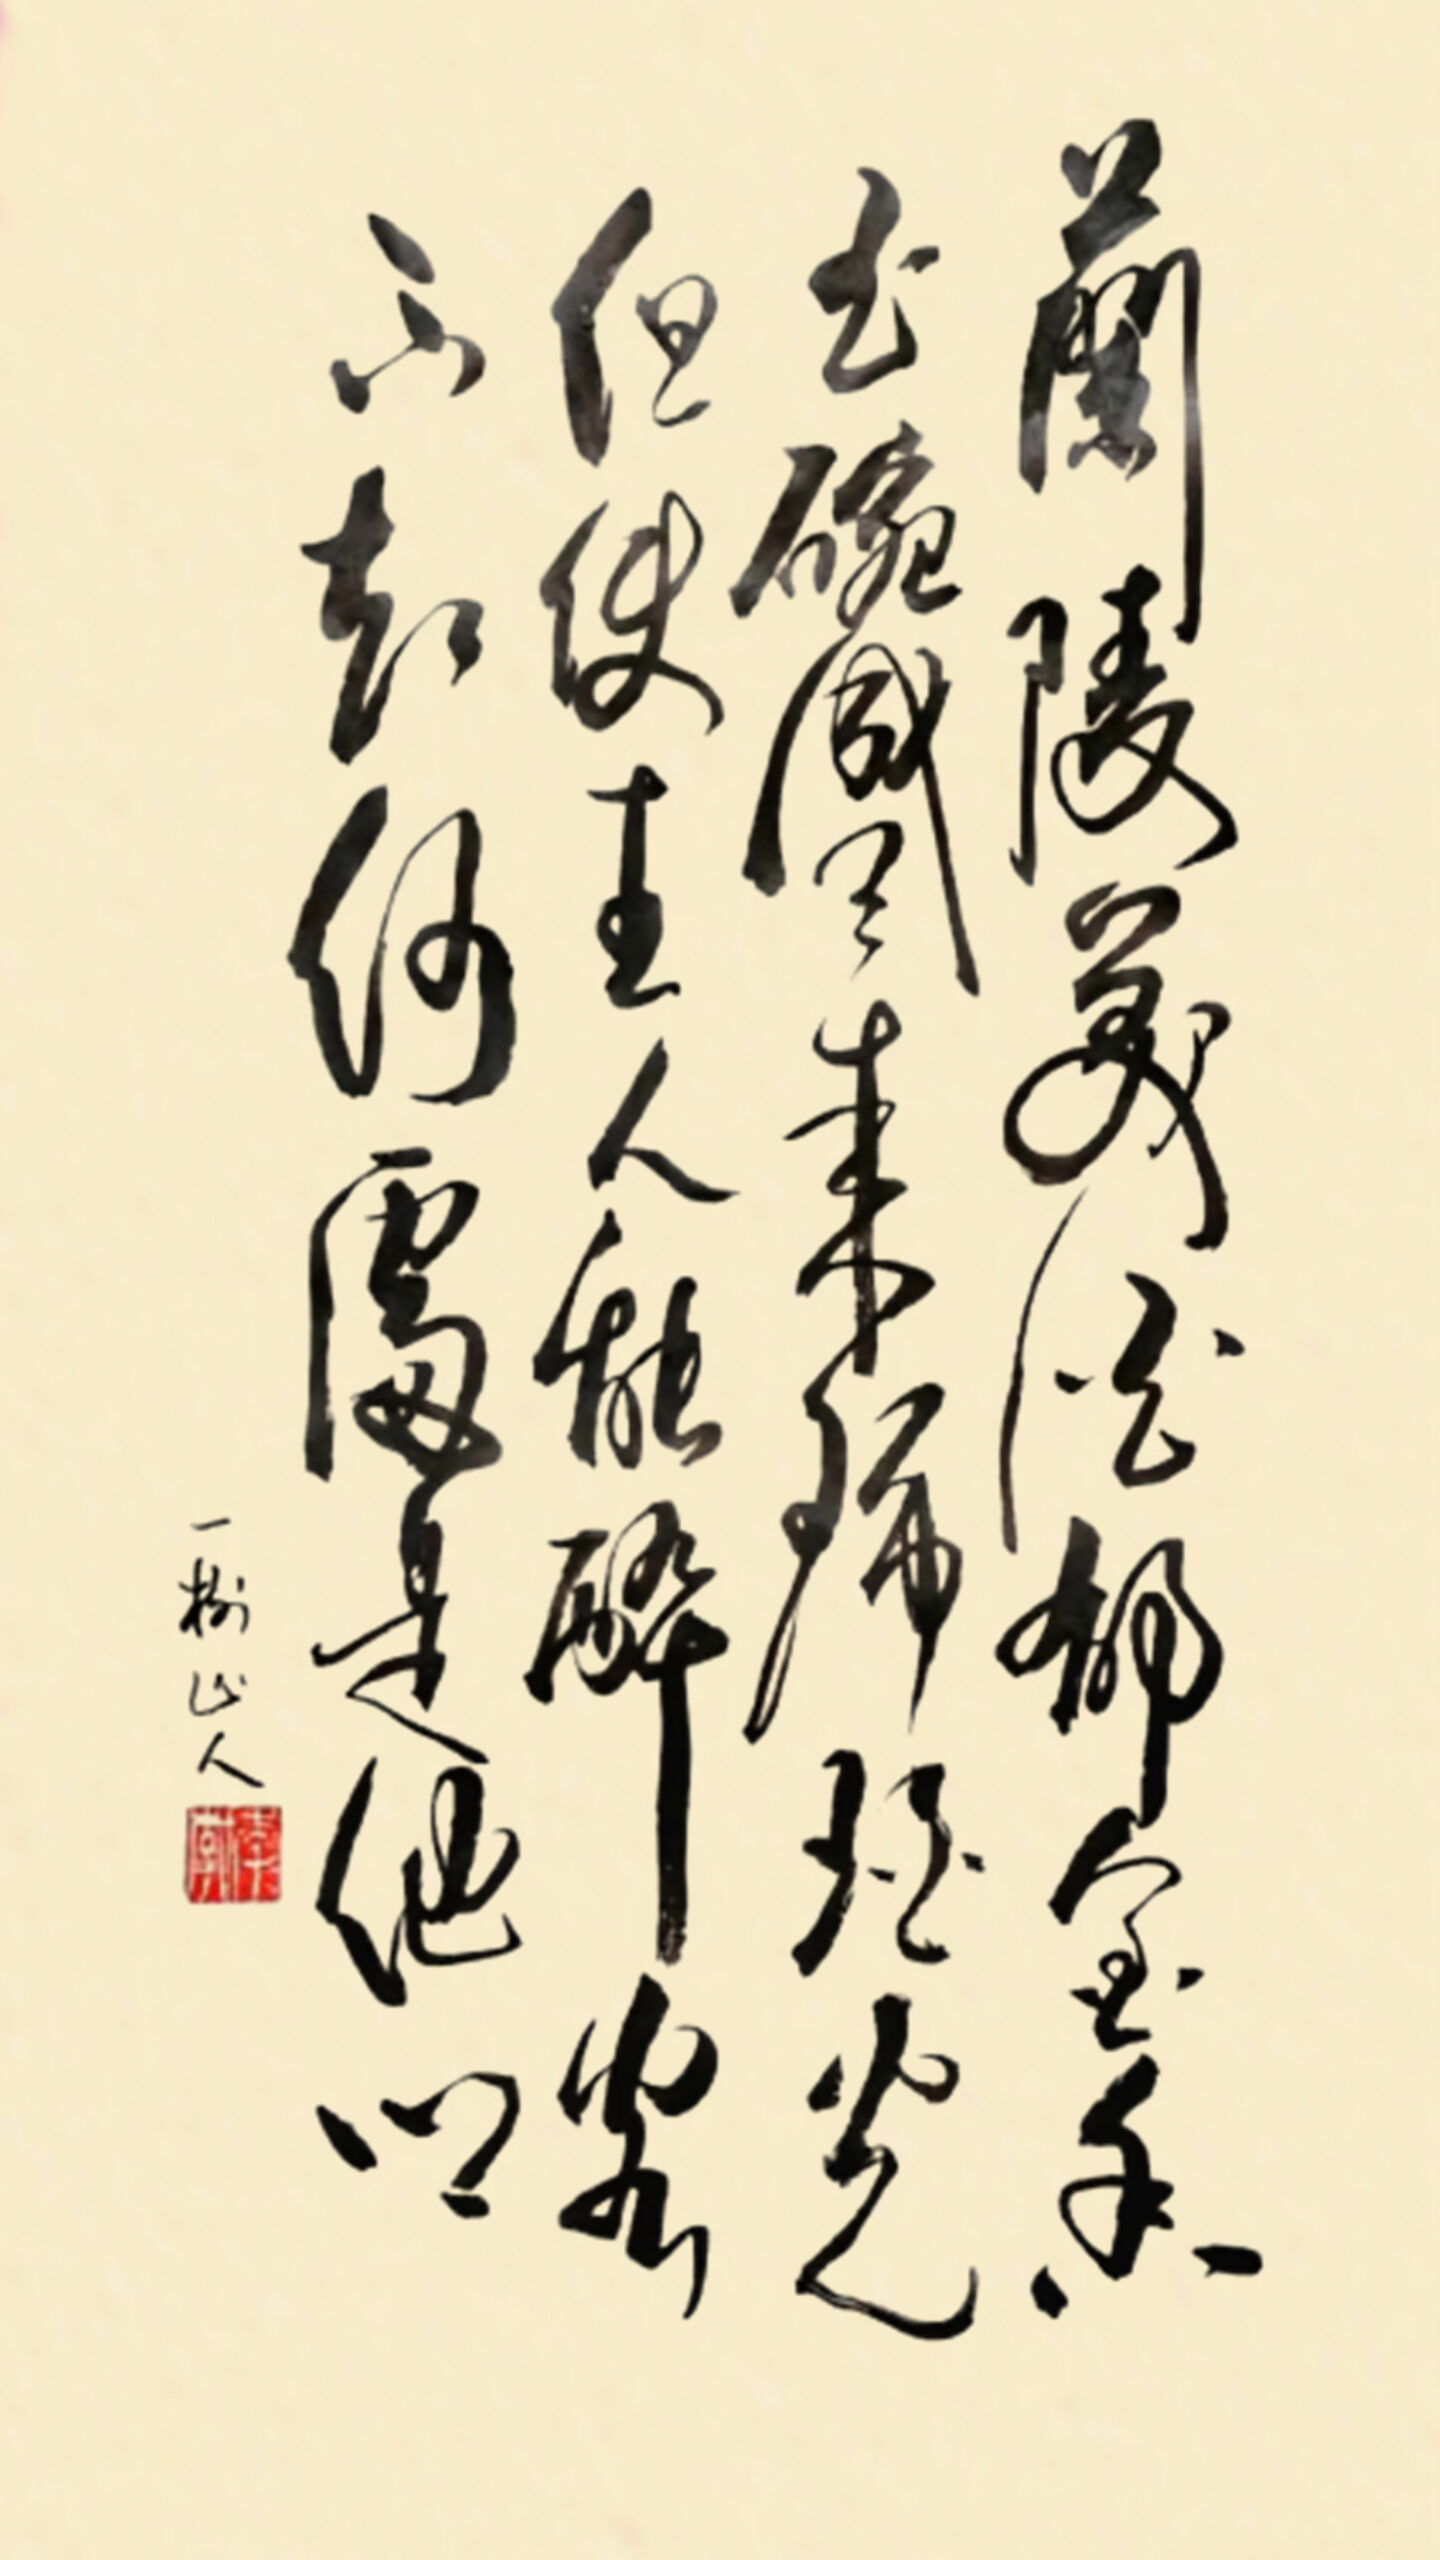 蘭陵美酒鬱金香
玉碗盛來琥珀光
但使主人能醉客
不知何處是他鄉
一樹山人